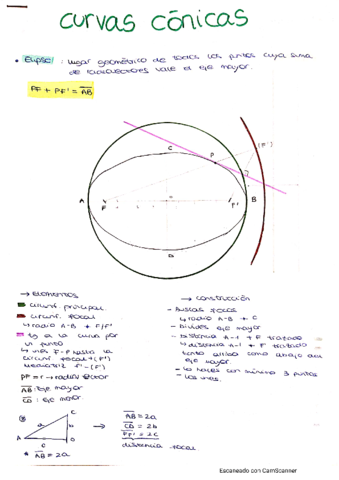 curvas cónicas
• Elipse: lugar geométrico de todos los puntos cuya suma
de radiovectores vale el eje mayor.
PF + PF' = AB
(F')
P
C
A
F
F'
B
D
→ Elementos
circunf. principal
circunf. focal
↳ radio A-B + F/F'
tg a la curva por
un punto
↳ unes F-P hasta la
circunf. focal + (F')
mediatriz F'-(F')
PF = r → radio vector
AB: eje mayor
CD: eje menor
→ construcción
- buscas focos
↳ radio A-B + C
- divides eje mayor
- distancia A-1 + F trazado
↳ distancia A-1 + F trazado
tanto arriba como abajo del
eje mayor.
- lo haces con mínimo 3 puntos
- los unes.
C
a
b
A
c
O
* AB = 2a
→
AB = 2a
CD = 2b
FF' = 2c
distancia focal
Escaneado con CamScanner